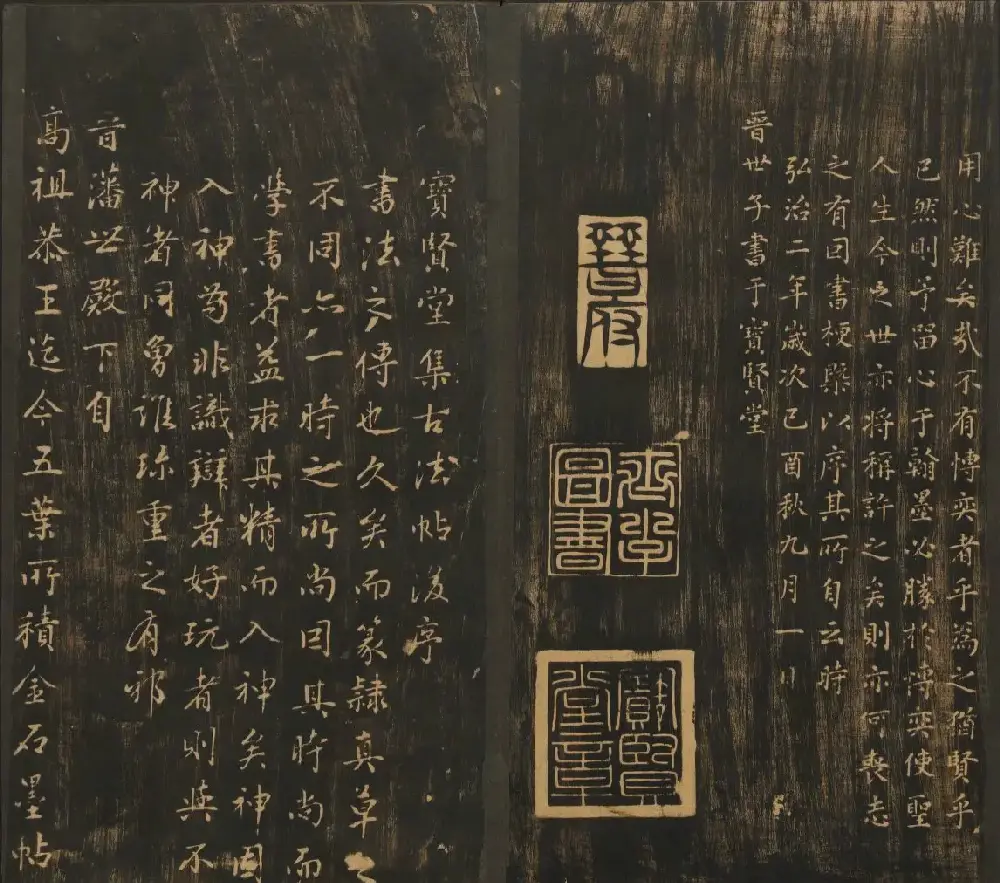 用心難矣哉不有博奕者乎為之猶賢乎
已然則予留心于翰墨必勝於博奕使聖
人生今之世亦將稱許之矣則亦何喪志
之有因書梗槩以序其所自云時
弘治二年歲次己酉秋九月一日
晉世子書于寶賢堂
晉府
圖書
寶賢堂章
寶賢堂集古法帖後序
書法之傳也久矣而篆隸真草之
不同亦一時之所尚因其時尚而
學書者益求其精而入神矣神固
入神若非識辯者好玩者則與不
神者同曾誰珍重之有邪
晉藩世殿下自
高祖恭王迄今五葉所積金石墨帖